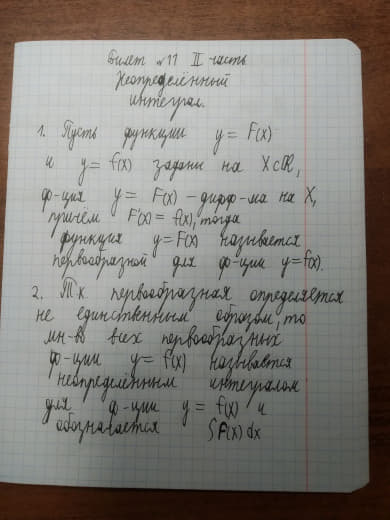 Билет №11 II часть
Неопределённый
интеграл.
1. Пусть функции y = F(x)
и y = f(x) заданы на X⊂ℝ,
ф-ция y = F(x) - дифф-ма на X,
причём F'(x) = f(x), тогда
функция y=F(x) называется
первообразной для ф-ции y=f(x).
2. Т.к. первообразная определяется
не единственным образом, то
мн-во всех первообразных
ф-ции y = f(x) называется
неопределённым интегралом
для ф-ции y = f(x) и
обозначается ∫F(x)dx